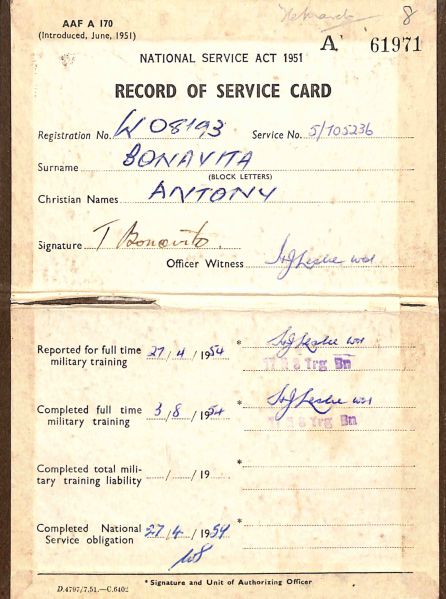 AAF A 170
(Introduced, June, 1951)
8
A 61971
NATIONAL SERVICE ACT 1951
RECORD OF SERVICE CARD
Registration No. W08193 Service No. 5/705236
Surname BONAVITA
(BLOCK LETTERS)
Christian Names ANTONY
Signature T Bonavita
Officer Witness
Reported for full time military training 27/4/1954 *
Trg Bn
Completed full time military training 3/8/1954 *
Trg Bn
Completed total mili-
tary training liability / /19 *
Completed National
Service obligation 27/4/1959 *
*Signature and Unit of Authorizing Officer
D.4797/7.51.—C.6402